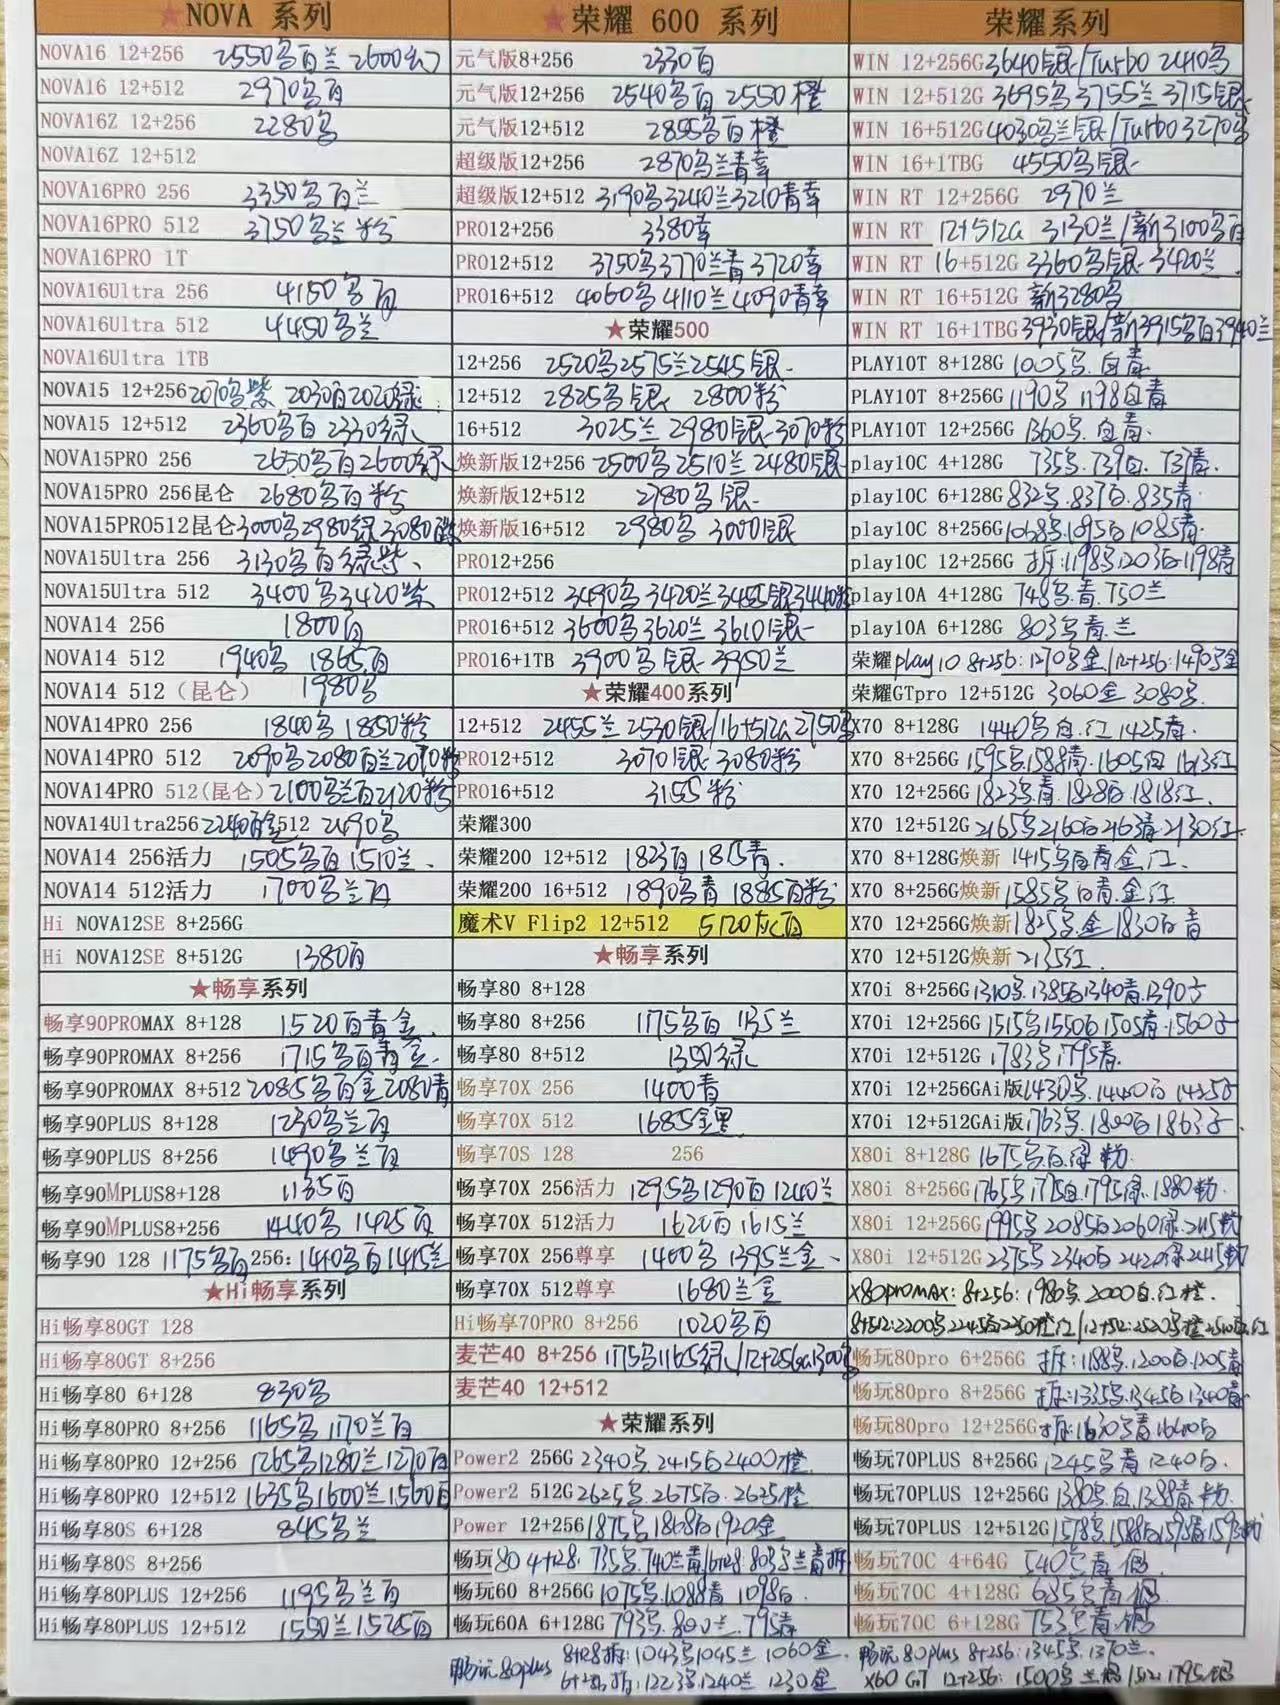 ★NOVA 系列
NOVA16 12+256 2550乌百兰 2600幻
NOVA16 12+512 2970乌百
NOVA16Z 12+256 2280乌
NOVA16Z 12+512
NOVA16PRO 256 3350乌百兰
NOVA16PRO 512 3750乌兰粉
NOVA16PRO 1T
NOVA16Ultra 256 4150乌百
NOVA16Ultra 512 4450乌兰
NOVA16Ultra 1TB
NOVA15 12+256 2070乌紫 2030百2020绿
NOVA15 12+512 2360乌百 2330绿
NOVA15PRO 256 2650乌百2600绿
NOVA15PRO 256昆仑 2680乌百粉
NOVA15PRO512昆仑3000乌2980绿3080百
NOVA15Ultra 256 3130乌百绿紫
NOVA15Ultra 512 3400乌3420紫
NOVA14 256 1800百
NOVA14 512 1940乌 1865百
NOVA14 512（昆仑） 1980乌
NOVA14PRO 256 1840乌 1850粉
NOVA14PRO 512 2090乌2080百兰2070粉
NOVA14PRO 512(昆仑)2100乌兰百2120粉
NOVA14Ultra256 2240百金512 2490乌
NOVA14 256活力 1505乌百1510兰
NOVA14 512活力 1700乌兰百
Hi NOVA12SE 8+256G
Hi NOVA12SE 8+512G 1380百
★畅享系列
畅享90PROMAX 8+128 1520百青金
畅享90PROMAX 8+256 1715乌百青金
畅享90PROMAX 8+512 2085乌百金2080青
畅享90PLUS 8+128 1230乌兰百
畅享90PLUS 8+256 1490乌兰百
畅享90MPLUS8+128 1135百
畅享90MPLUS8+256 1440乌 1425百
畅享90 128 1175乌百256：1440乌百1415兰
★Hi畅享系列
Hi畅享80GT 128
Hi畅享80GT 8+256
Hi畅享80 6+128 830乌
Hi畅享80PRO 8+256 1165乌1170兰百
Hi畅享80PRO 12+256 1265乌1280兰1270百
Hi畅享80PRO 12+512 1635乌1600兰1560百
Hi畅享80S 6+128 845乌兰
Hi畅享80S 8+256
Hi畅享80PLUS 12+256 1195乌兰百
Hi畅享80PLUS 12+512 1550兰1525百
★荣耀 600 系列
元气版8+256 2330百
元气版12+256 2540乌百2550橙
元气版12+512 2855乌百橙
超级版12+256 2870乌兰青幸
超级版12+512 3190乌3240兰3210青幸
PRO12+256 3380幸
PRO12+512 3750乌3770兰青3720幸
PRO16+512 4060乌4110兰4090青幸
★荣耀500
12+256 2520乌2575兰2545银
12+512 2825乌银 2800粉
16+512 3025兰2980银3070粉
焕新版12+256 2500乌2510兰2480银
焕新版12+512 2780乌银
焕新版16+512 2980乌 3000银
PRO12+256
PRO12+512 3490乌3420兰3455银3440粉
PRO16+512 3600乌3620兰3610银
PRO16+1TB 3900乌银 3950兰
★荣耀400系列
12+512 2455兰2530银/16+512G 2750乌
PRO12+512 3070银3080粉
PRO16+512 3155粉
荣耀300
荣耀200 12+512 1823百1815青
荣耀200 16+512 1890乌青1885百粉
魔术V Flip2 12+512 5120灰百
★畅享系列
畅享80 8+128
畅享80 8+256 1175乌百1135兰
畅享80 8+512 1350绿
畅享70X 256 1400青
畅享70X 512 1685金黑
畅享70S 128 256
畅享70X 256活力 1295乌1290百1240兰
畅享70X 512活力 1620百1615兰
畅享70X 256尊享 1400乌 1395兰金
畅享70X 512尊享 1680兰金
Hi畅享70PRO 8+256 1020乌百
麦芒40 8+256 1175乌1165绿/12+256G1300乌
麦芒40 12+512
★荣耀系列
Power2 256G 2340乌.2415白2400橙
Power2 512G 2625乌.2675白.2625橙
Power 12+256 1875乌1868白1920金
畅玩80 4+128：735乌.740兰青/6+128：803乌兰青拆
畅玩60 8+256G 1075乌.1088青 1098白
畅玩60A 6+128G 793乌.800兰.795青
畅玩80plus 8+128拆：1043乌1045兰 1060金
6+256拆：1223乌.1240兰 1230金
荣耀系列
WIN 12+256G3640银/Turbo 2410乌
WIN 12+512G 3695乌3755兰3715银
WIN 16+512G4030乌兰银/Turbo3270乌
WIN 16+1TBG 4550乌银
WIN RT 12+256G 2970兰
WIN RT 12+512G 3130兰/新3100乌百
WIN RT 16+512G 3360乌银 3420兰
WIN RT 16+512G 新3280乌
WIN RT 16+1TBG3930银/新3915乌百3940兰
PLAY10T 8+128G 1005乌.白青
PLAY10T 8+256G 1190乌 1198白青
PLAY10T 12+256G 1360乌.白青
play10C 4+128G 735乌.739白.737青
play10C 6+128G 832乌.837白.835青
play10C 8+256G1068乌1095白1085青
play10C 12+256G 拆：1198乌1203白1198青
play10A 4+128G 748乌.青.750兰
play10A 6+128G 803乌青.兰
荣耀play10 8+256：1270乌金/12+256：1490乌金
荣耀GTpro 12+512G 3060金 3080乌
X70 8+128G 1440乌白.红1425青
X70 8+256G 1595乌1588青.1605白1613红
X70 12+256G 1823乌青.1828白1818红
X70 12+512G 2165乌2160白2163青2130红
X70 8+128G焕新 1415乌白青金红
X70 8+256G焕新 1585乌白青.金红
X70 12+256G焕新1825乌.金1830白青
X70 12+512G焕新 2135红
X70i 8+256G1310乌.1385白1340青.1390方
X70i 12+256G 1515乌1550白1505青.1560子
X70i 12+512G 1783乌1795青
X70i 12+256GAi版1430乌.1440白1425子
X70i 12+512GAi版1763乌.1800白1863子
X80i 8+128G 1675乌白绿粉
X80i 8+256G1765乌1775白.1795绿.1880粉
X80i 12+256G1995乌2085白2060绿.2115粉
X80i 12+512G2375乌2340白2420绿2415粉
X80proMAX：8+256：1980乌.2000白.红橙
8+512：2200乌2245白2250橙红/12+512：2520乌橙2510白红
畅玩80pro 6+256G 拆：1188乌.1200白.1205青
畅玩80pro 8+256G 拆：1335乌.1345白1340青
畅玩80pro 12+256G拆：1630乌青1640白
畅玩70PLUS 8+256G 1245乌青1240白
畅玩70PLUS 12+256G1380乌.白1388青粉
畅玩70PLUS 12+512G1578乌1588白1598青1593粉
畅玩70C 4+64G 540乌青
畅玩70C 4+128G 685乌青
畅玩70C 6+128G 753乌青
畅玩80plus 8+256：1345乌.1370兰
X60 GT 12+256：1500乌